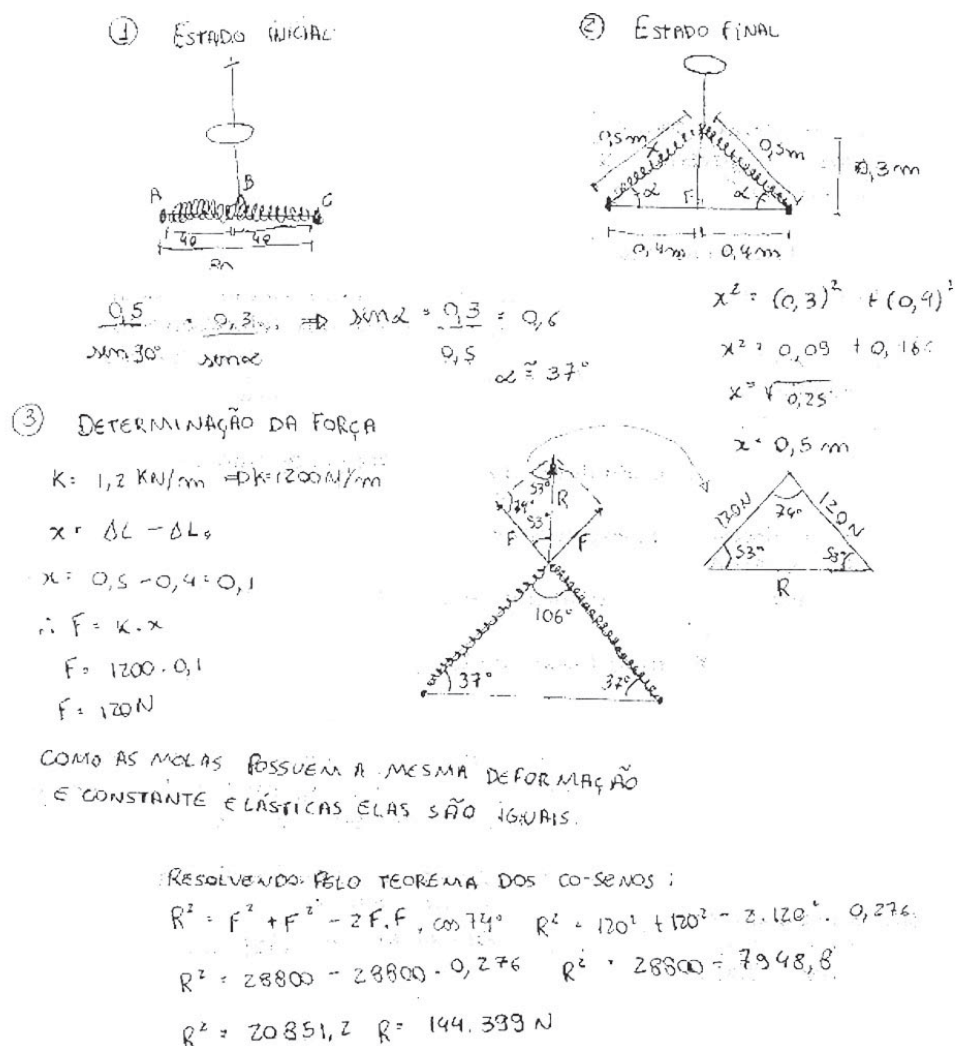 ① ESTADO INICIAL
② ESTADO FINAL
A B C
40 40
0,5m 0,5m
0,3m
α α
0,4m 0,4m
0,5 / sin 30° = 0,3 / sin α ⇒ sin α = 0,3 / 0,5 = 0,6
α ≅ 37°
x² = (0,3)² + (0,4)²
x² = 0,09 + 0,16
x = √0,25
x = 0,5 m
③ DETERMINAÇÃO DA FORÇA
K = 1,2 KN/m ⇒ K = 1200 N/m
x = ΔL - ΔL₀
x = 0,5 - 0,4 = 0,1
∴ F = K.x
F = 1200.0,1
F = 120N
53° 74° R 53° F F
106°
37° 37°
120N 120N
74°
53° 53°
R
COMO AS MOLAS POSSUEM A MESMA DEFORMAÇÃO
E CONSTANTE ELÁSTICAS ELAS SÃO IGUAIS.
RESOLVENDO PELO TEOREMA DOS CO-SENOS:
R² = F² + F² - 2F.F. cos 74° R² = 120² + 120² - 2.120². 0,276
R² = 28800 - 28800.0,276 R² = 28800 - 7948,8
R² = 20851,2 R = 144.399 N